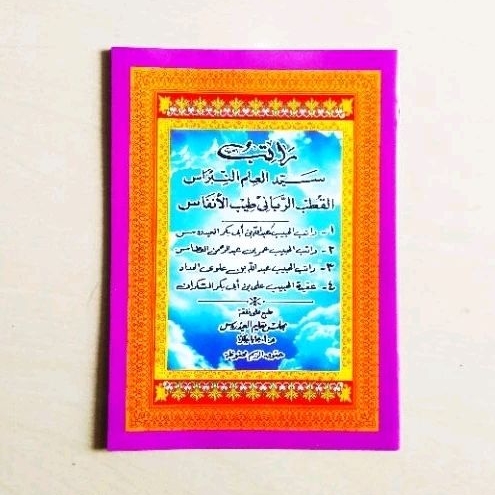 راتب
سيد العلم النبراس
القطب الرباني طيب الأنفاس
١- راتب الحبيب عبدالله بن أبي بكر العيدروس
٢- راتب الحبيب عمر بن عبد الرحمن العطاس
٣- راتب الحبيب عبدالله بن علوي الحداد
٤- عقيدة الحبيب علي بن أبي بكر السكران
طبع على نفقة
حقوق الطبع محفوظة